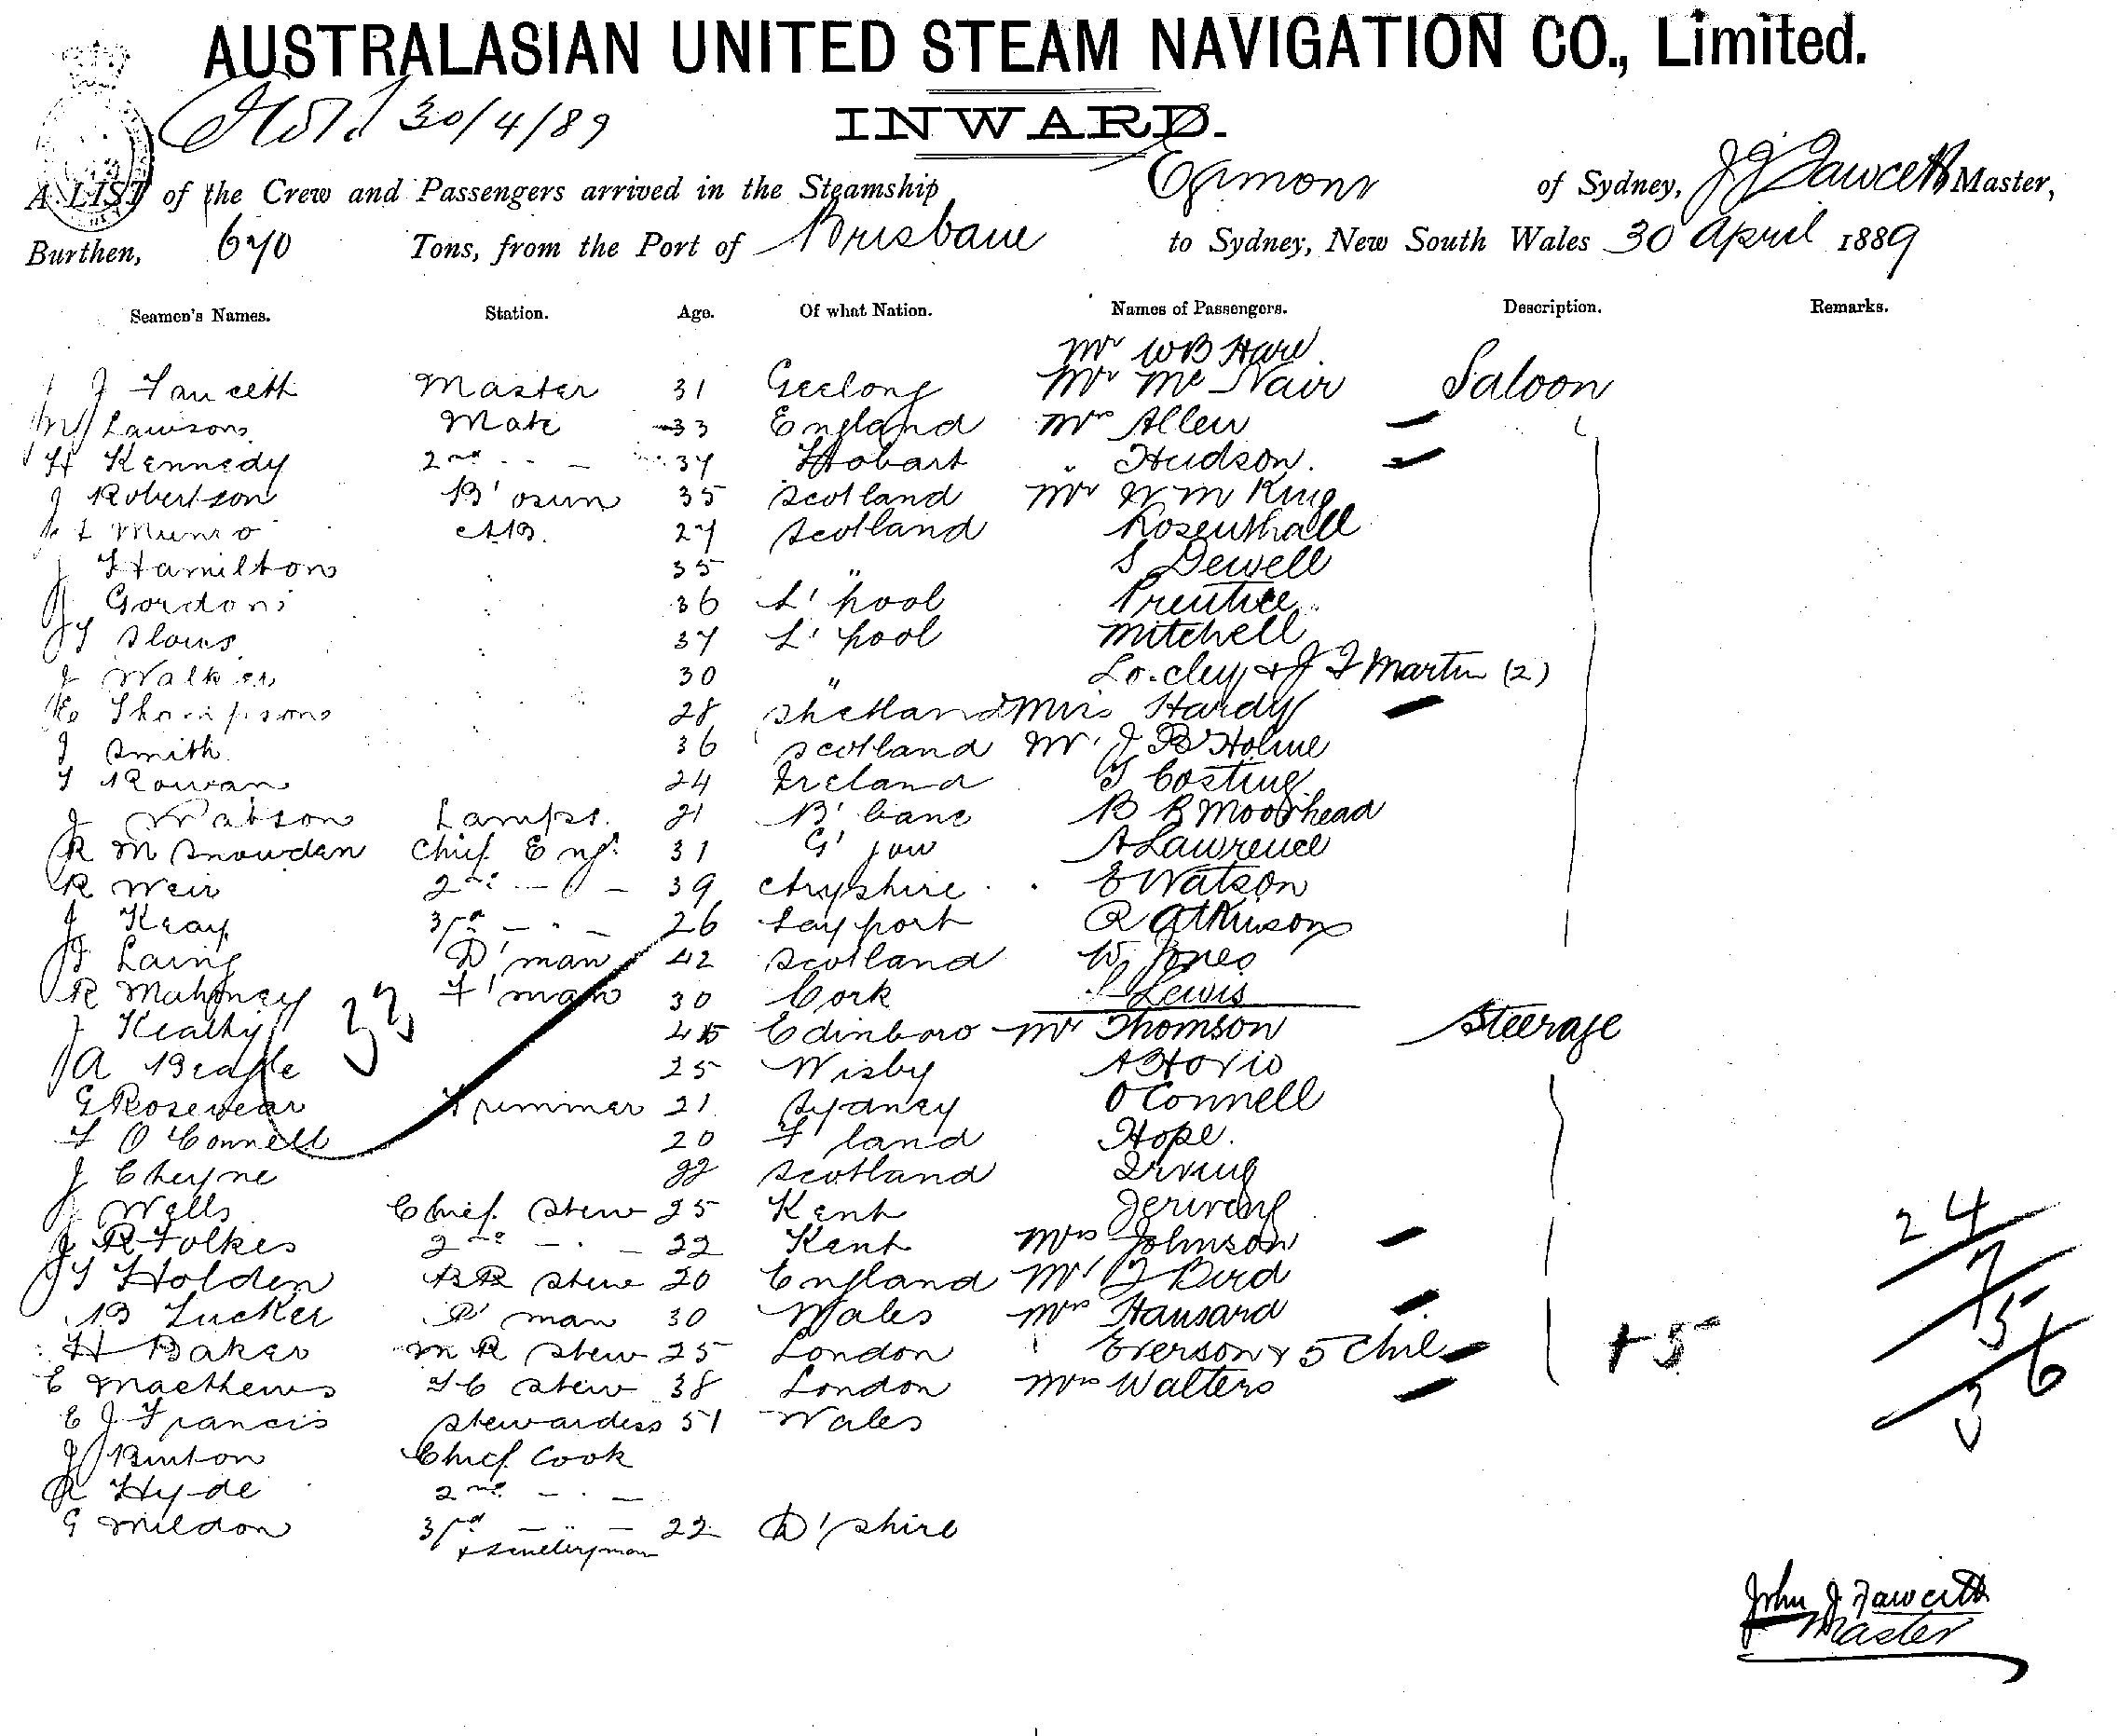 AUSTRALASIAN UNITED STEAM NAVIGATION CO., Limited.
30/4/89 INWARD.
A LIST of the Crew and Passengers arrived in the Steamship Egmont of Sydney, J J Fawcett Master,
Burthen, 670 Tons, from the Port of Brisbane to Sydney, New South Wales 30 April 1889
Seamen's Names. Station. Age. Of what Nation. Names of Passengers. Description. Remarks.
Mr W B Hare
J Fawcett Master 31 Geelong Mr McNair Saloon
Lawson Mate 33 England Mrs Allen
H Kennedy 2nd " 37 Hobart " Hudson.
J Robertson B'osun 35 Scotland Mr W M King
Munro AB. 27 Scotland Rosenthall
J Hamilton 35 " S Dewell
Gordon 36 L'pool Prentice
37 L'pool Mitchell
J Walker 30 " & J F Martin (2)
Thompson 28 Shetland Miss Hardy
J Smith 36 Scotland Mr J B Holme
T Rowan 24 Ireland T Costing
J Watson Lamps. 21 B'bane B B Moorhead
R M Snowden Chief Engr 31 G'gow A Lawrence
R Weir 2nd " 39 Ayrshire E Watson
J Keay 3rd " 26 Tayport R Atkinson
J Laing D'man 42 Scotland W. Jones
R Mahoney F'man 30 Cork Lewis
33
J Keathy 45 Edinboro Mr Thomson Steerage
A Beagle 25 Wisby
G Rosevear Trimmer 21 Sydney O'Connell
T O'Connell 20 I'land Hope.
J Cheyne 22 Scotland Irving
J Wells Chief Stew 25 Kent
J R Folkes 2nd " 22 Kent Mrs Johnson
J T Holden BR Stew 20 England Mr J Bird
B Tucker P'man 30 Wales Mrs Hansard
H Baker M R Stew 25 London " Everson & 5 Chil + 5
E Matthews F C Stew 38 London Mrs Walters
E J Francis Stewardess 51 Wales
J Binton Chief Cook
R Hyde 2nd "
G Mildon 3rd " 22 D'shire
& Sculleryman
24
7
5
6
3
John J Fawcett
Master